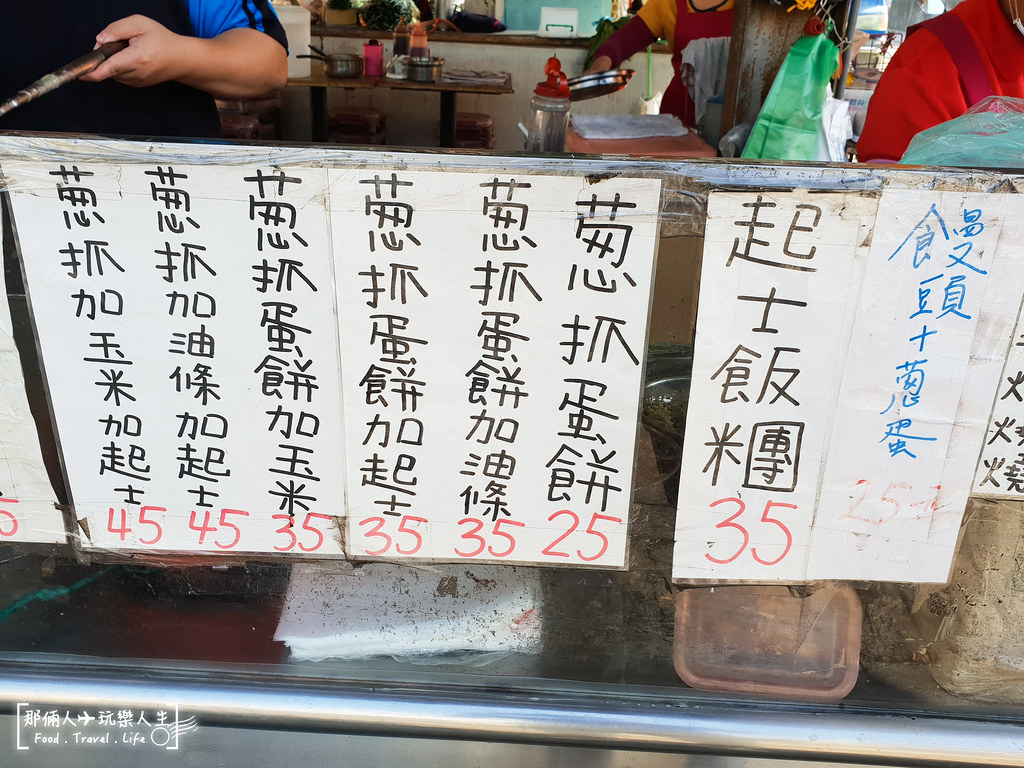 饅頭+葱蛋
25元
起士飯糰
35
葱抓蛋餅
25
葱抓蛋餅加油條
35
葱抓蛋餅加起士
35
葱抓蛋餅加玉米
35
葱抓加油條加起士
45
葱抓加玉米加起士
45
那倆人玩樂人生
Food . Travel . Life